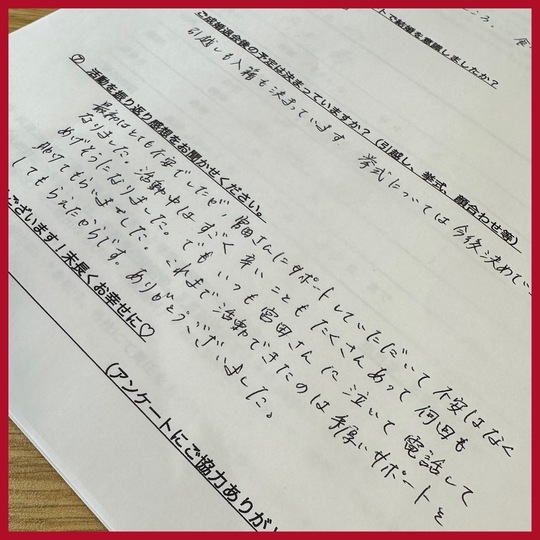 トで結婚を意識しましたか?
ご成婚退会後の予定は決まっていますか?(引越し、挙式、顔合わせ等)
引越しも入籍も決まっています 挙式については今後決めてい
⑦ 活動を振り返り感想をお聞かせください。
最初はとても不安でしたが、宮田さんにサポートしていただいて不安はなく
なりました。活動中はすごく辛いこともたくさんあって何回も
めげそうになりました。でもいつも宮田さんに泣いて電話して
助けてもらいました。これまで活動できたのは手厚いサポートを
してもらえたからです。ありがとうございました。
ございます!末長くお幸せに♡
(アンケートにご協力ありが